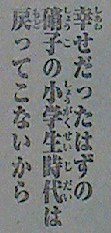 幸せだったはずの
硝子の小学生時代は
戻ってこないから